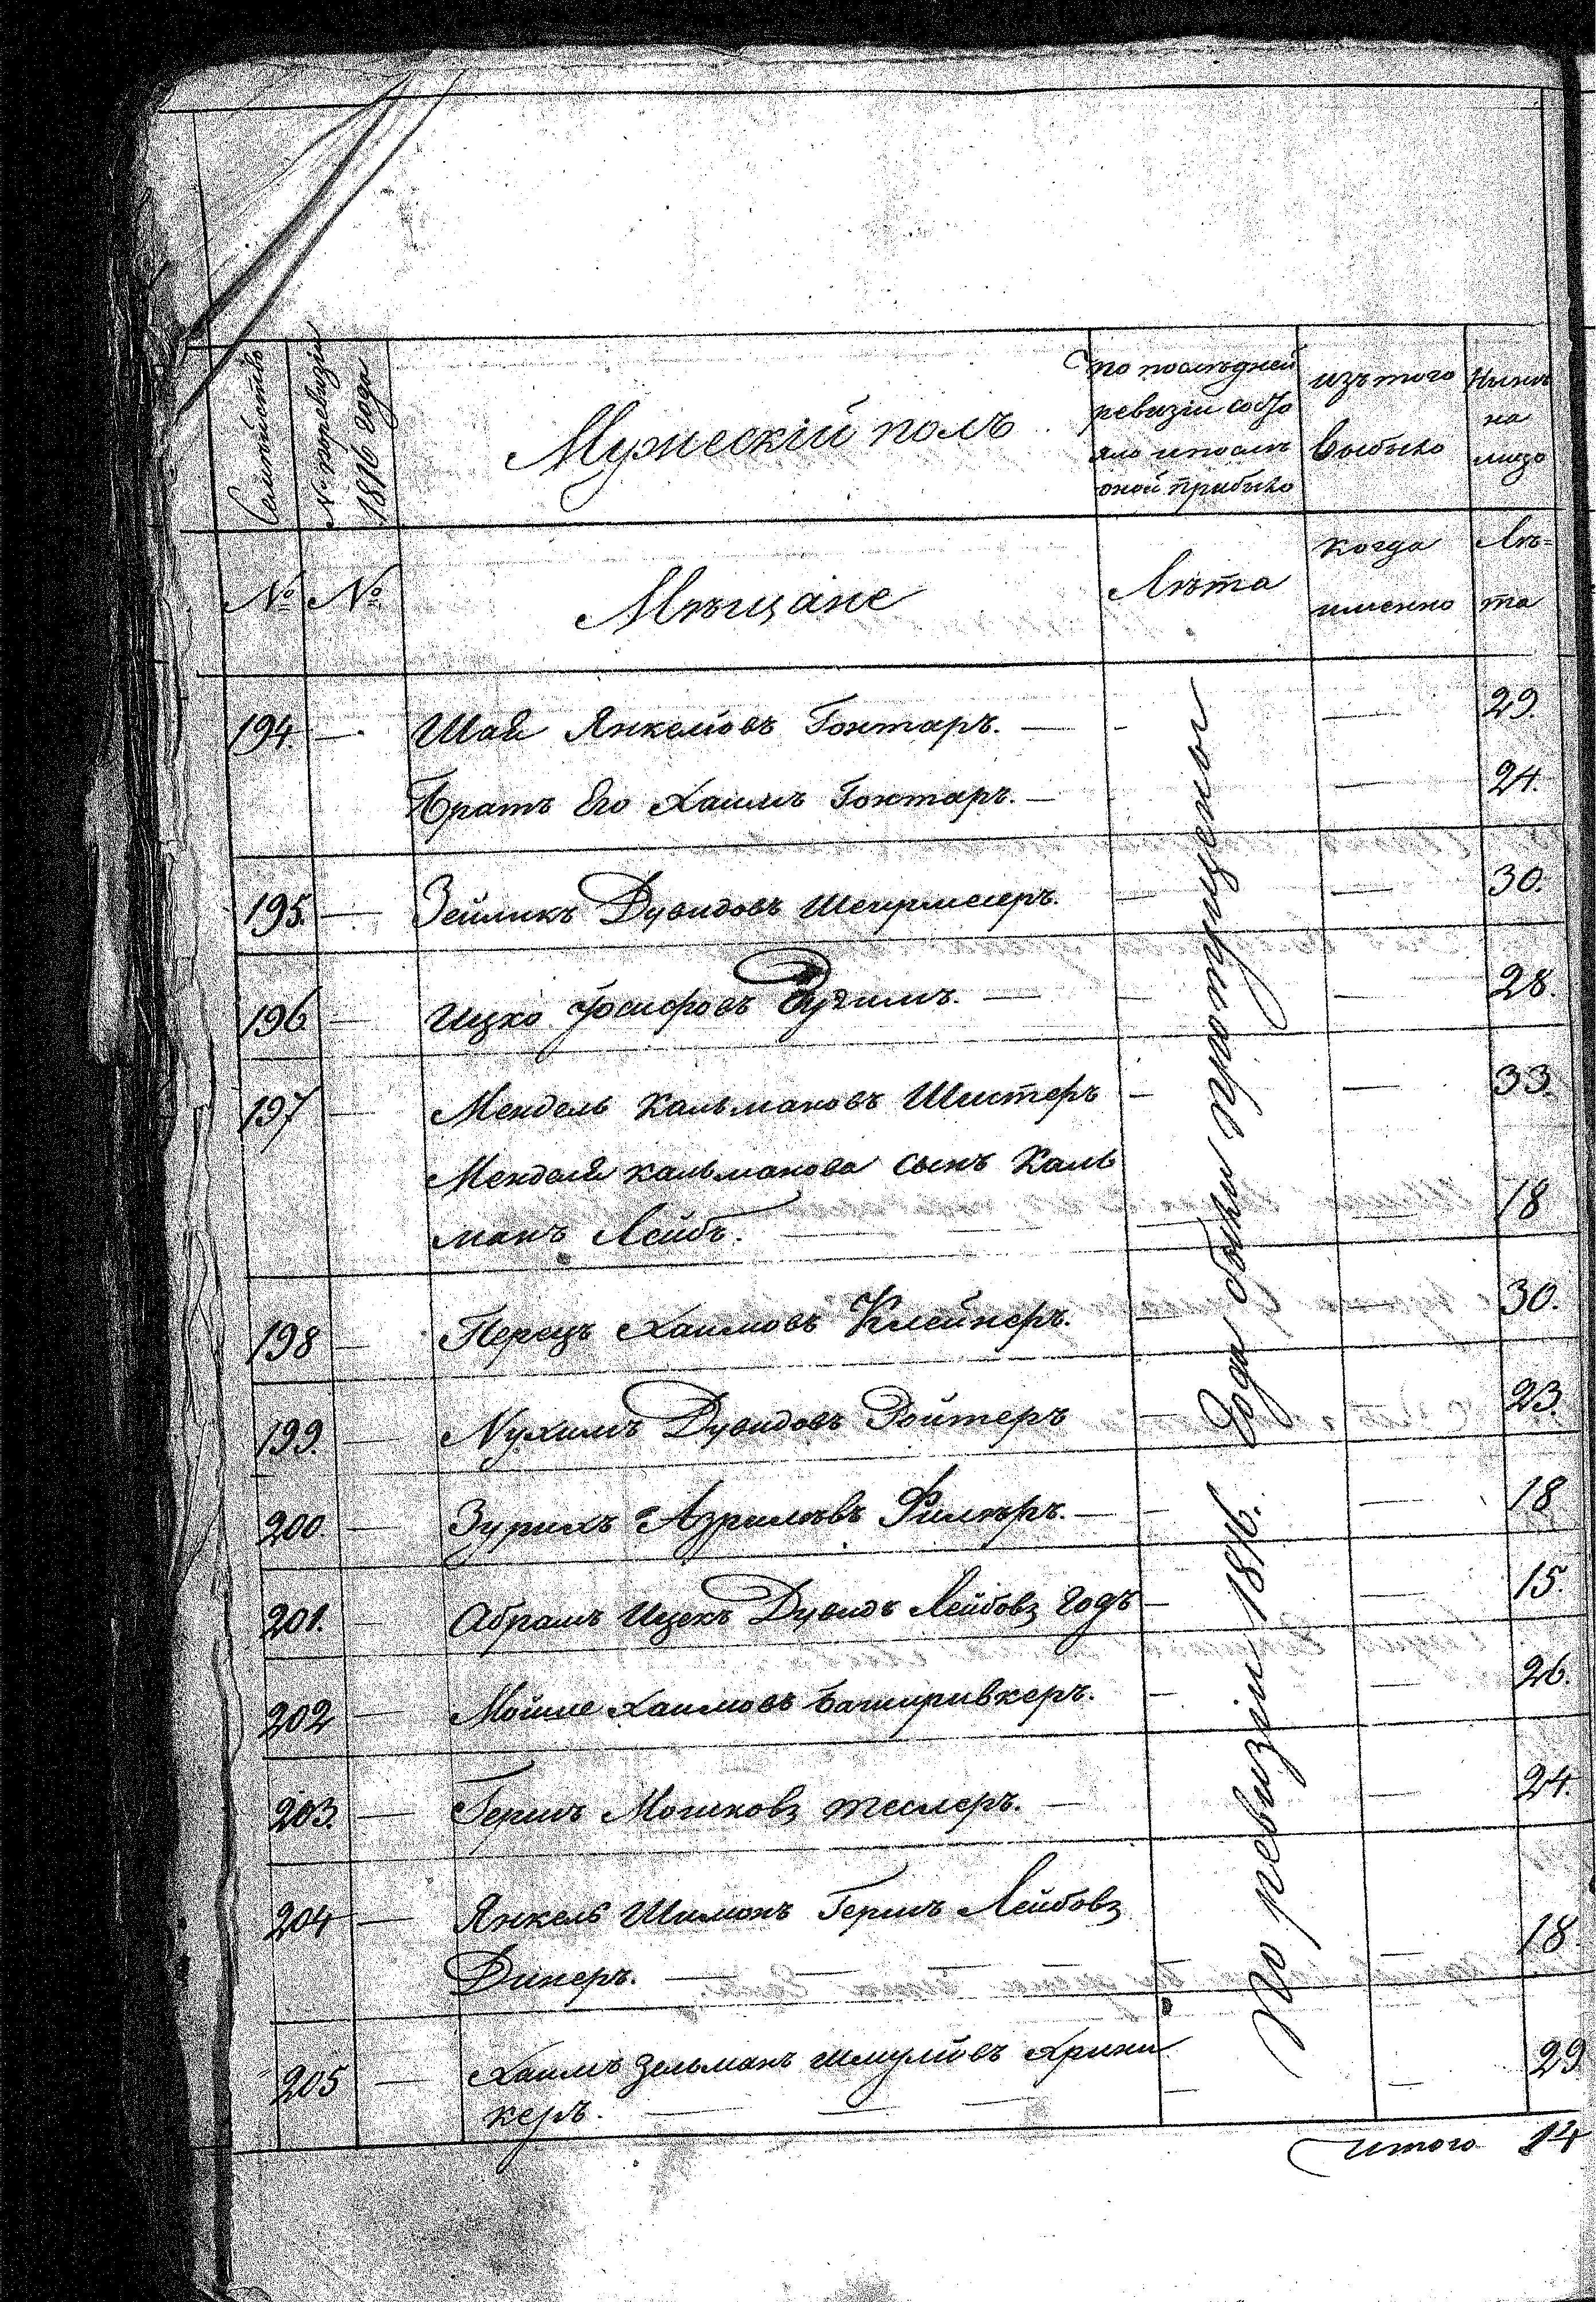 Семействъ
№ по ревизіи
1816 года
Мужескій полъ
по последней
ревизіи состо
яло и после
оной прибыло
изъ того
выбыло
Ныне
на
лицо
№ №
Мещане
Лета
когда
именно
Ле=
та
194. — Шая Янкелевъ Гонтаръ. — — — 29.
Братъ Его Хаимъ Гонтаръ. — — 24.
195. — Зейликъ Дувидовъ — — 30.
196 — Ицко Іосифовъ — — — 28.
197 — Мендель Кальмановъ Шистеръ — — 33.
Менделя Кальманова сынъ Каль
манъ Лейбъ. — — — 18
198 — Перецъ Хаимовъ Клейнеръ. — — 30.
199. — Нухимъ Дувидовъ Ройтеръ — — 23.
200. — Зурихъ Азриловъ Филеръ. — — — 18
201. — Абрамъ Ицекъ Дувидъ Лейбовъ Годъ — — 15.
202 — Мойше Хаимовъ — — 26.
203. — Гершъ Мошковъ теслеръ. — — 24.
204 — Янкель Шимонъ Гершъ Лейбовъ
Динеръ. — — — — — — 18.
205 — Хаимъ Зельманъ Шмулевъ Крини
керъ. — — — — — 29
По ревизіи 1816. Года были пропущены
итого 14